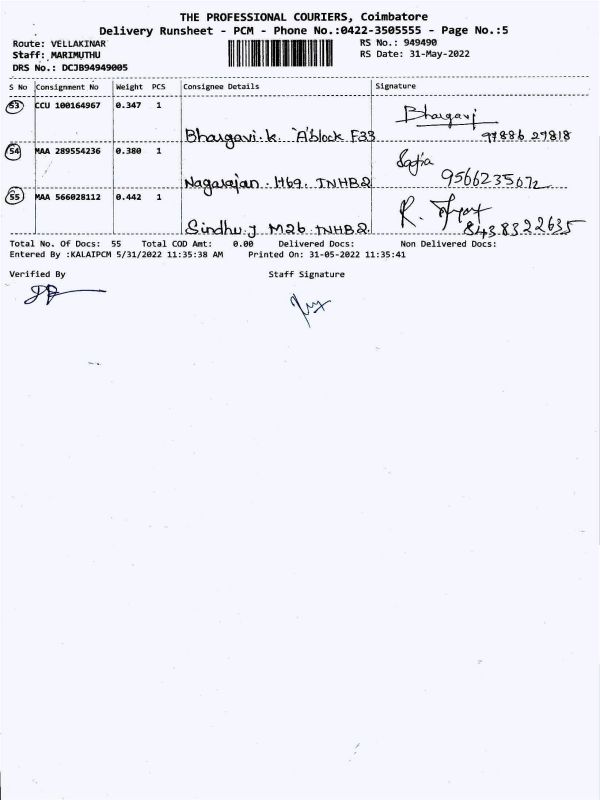 THE PROFESSIONAL COURIERS, Coimbatore
Delivery Runsheet - PCM - Phone No.:0422-3505555 - Page No.:5
Route: VELLAKINAR RS No.: 949490
Staff: MARIMUTHU RS Date: 31-May-2022
DRS No.: DCJB94949005
S No Consignment No Weight PCS Consignee Details Signature
53 CCU 100164967 0.347 1 Bhargavi
Bhargavi.k. 'A'block F33 97886 27818
54 MAA 289554236 0.380 1
Nagarajan. H69. TNHB2 9566235072
55 MAA 566028112 0.442 1 R.
Sindhu.J M26 TNHB2 8438322635
Total No. Of Docs: 55 Total COD Amt: 0.00 Delivered Docs: Non Delivered Docs:
Entered By :KALAIPCM 5/31/2022 11:35:38 AM Printed On: 31-05-2022 11:35:41
Verified By Staff Signature